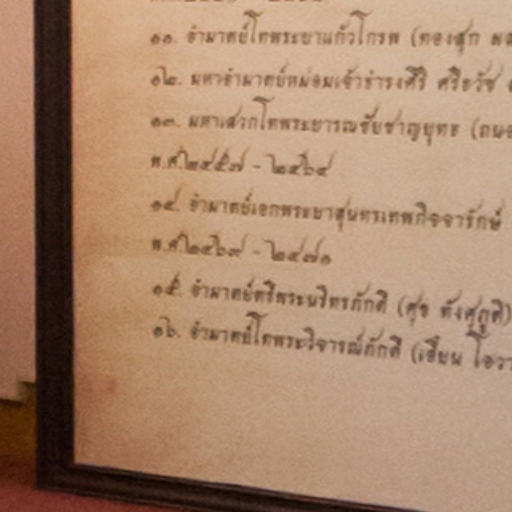 ๑๑. อำมาตย์โทพระยาแก้วโกรพ (ทองสุก
๑๒. มหาอำมาตย์หม่อมเจ้าธำรงศิริ ศรีธวัช
๑๓. มหาเสวกโทพระยารณชัยชาญยุทธ (ถนอ
พ.ศ.๒๔๕๗ - ๒๔๖๔
๑๔. อำมาตย์เอกพระยาสุนทรเทพกิจจารักษ์
พ.ศ.๒๔๖๙ - ๒๔๗๑
๑๕. อำมาตย์ตรีพระนรินทรภักดี (สุข ทังศุภูติ)
๑๖. อำมาตย์โทพระวิจารณ์ภักดี (เอี่ยน โอวา